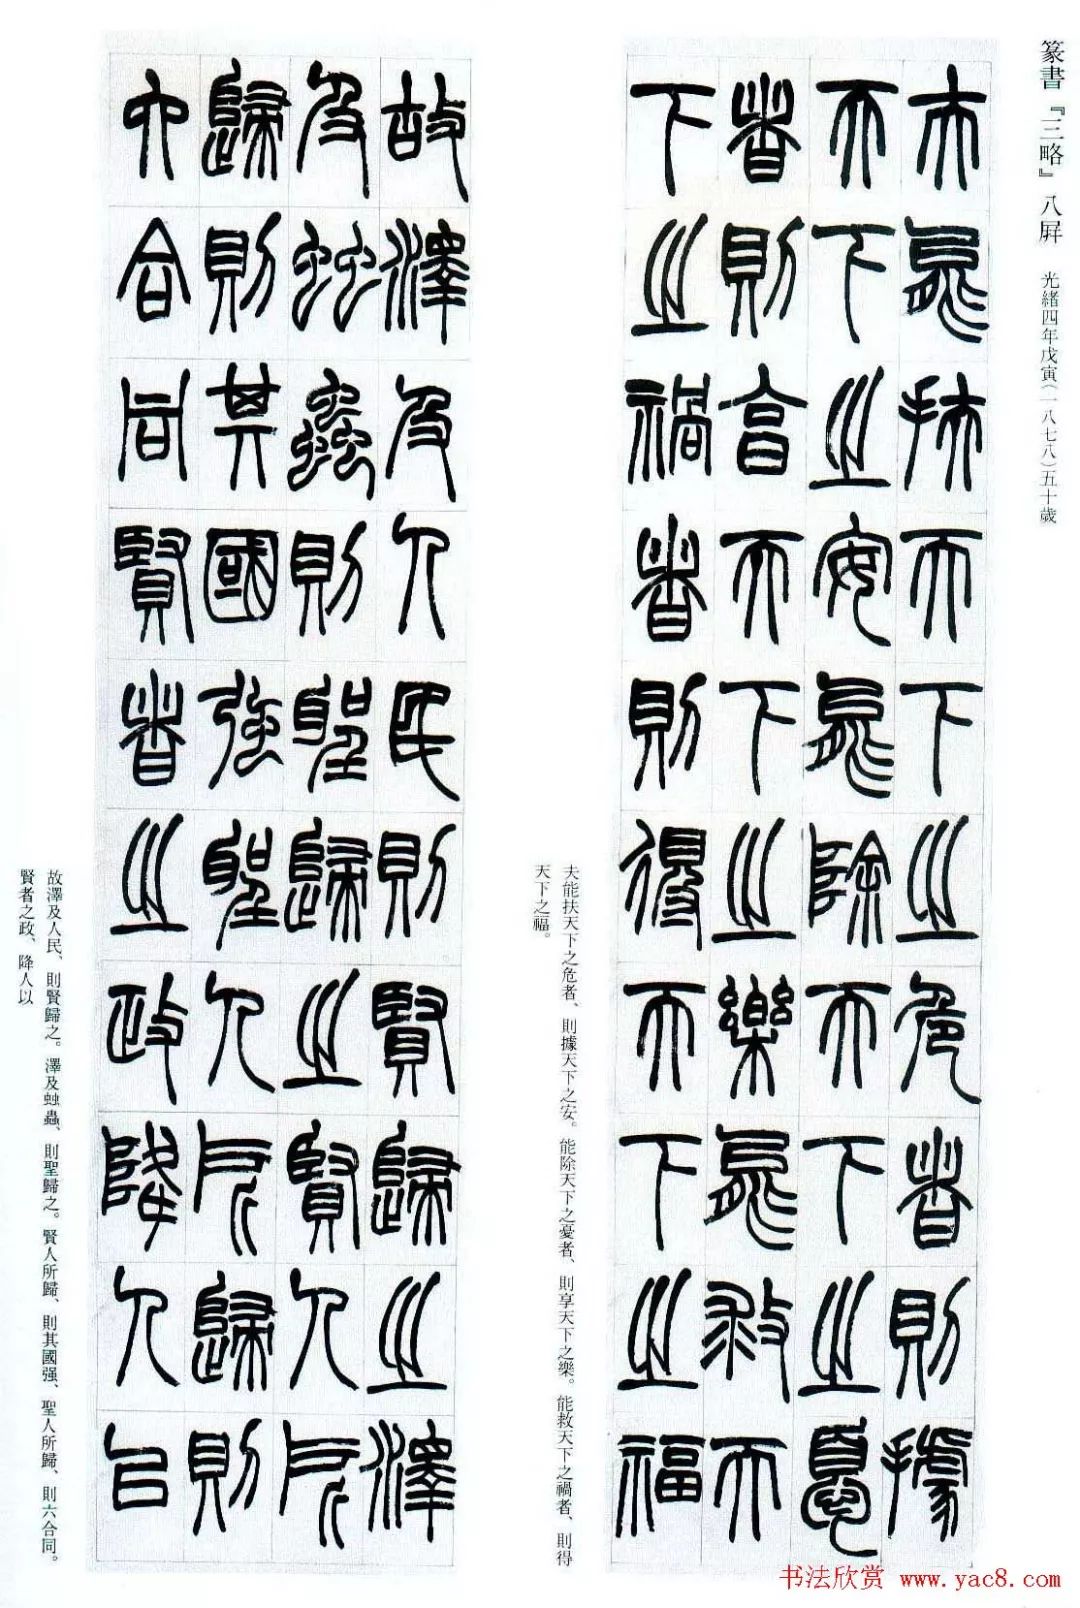 篆書『三略』八屏 光緒四年戊寅(一八七八)五十歲
夫能扶天下之危者則據
天下之安能除天下之憂
者則享天下之樂能救天
下之禍者則得天下之福
夫能扶天下之危者、則據天下之安。能除天下之憂者、則享天下之樂。能救天下之禍者、則得
天下之福。
故澤及人民則賢歸之澤
及䖵蟲則聖歸之賢人所
歸則其國強聖人所歸則
六合同賢者之政降人以
故澤及人民、則賢歸之。澤及䖵蟲、則聖歸之。賢人所歸、則其國强、聖人所歸、則六合同。
賢者之政、降人以
书法欣赏 www.yac8.com